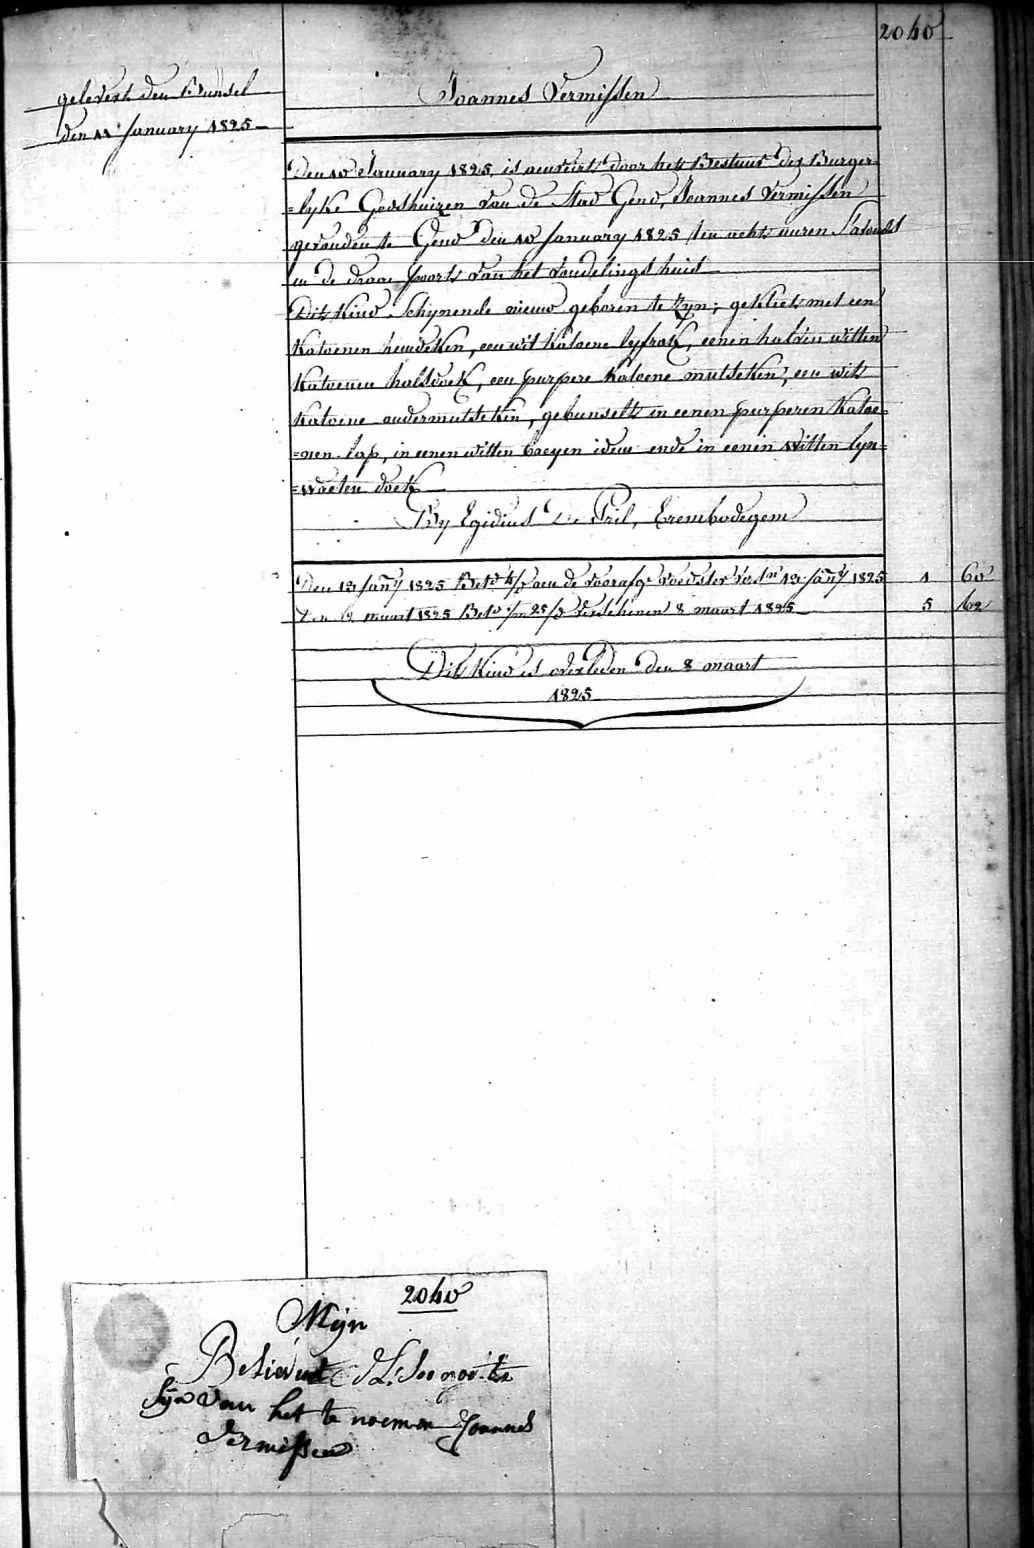 2040
gelevert den Bunsel
den 11 January 1825
Joannes Vermissen
Den 10 January 1825, is aenveirt door het Bestuur der Burger=
=lyke Godshuizen van de Stad Gend, Joannes Vermissen
gevonden te Gend den 10 January 1825 ten acht uuren S'avonds
in de draai poort van het Vondelings huis
Dit Kind Schynende nieuw geboren te Zyn; gekleet met een
Katoenen hemdeken, een wit Katoene lyfrok, eenen halven witten
Katoenen halsdoek, een purpere Katoene mutseken, een wit
Katoene ondermutseken, gebunselt in eenen purperen Katoe=
=nen lap, in eenen witten baeyen idem ende in eenen witten lyn=
=waeten doek
By Egidius De Pril, Erembodegem
Den 13 Jany 1825 Bet. aen de voorafge voedster 13 Jany 1825 1 60
Den 8 maart 1825 Bet. 25 verschenen 8 maart 1825 5 62
Dit Kind is overleden den 8 maart
1825
2040
Mijn
Believert goed te
Syn van het te noemen Joannes
Vermissen